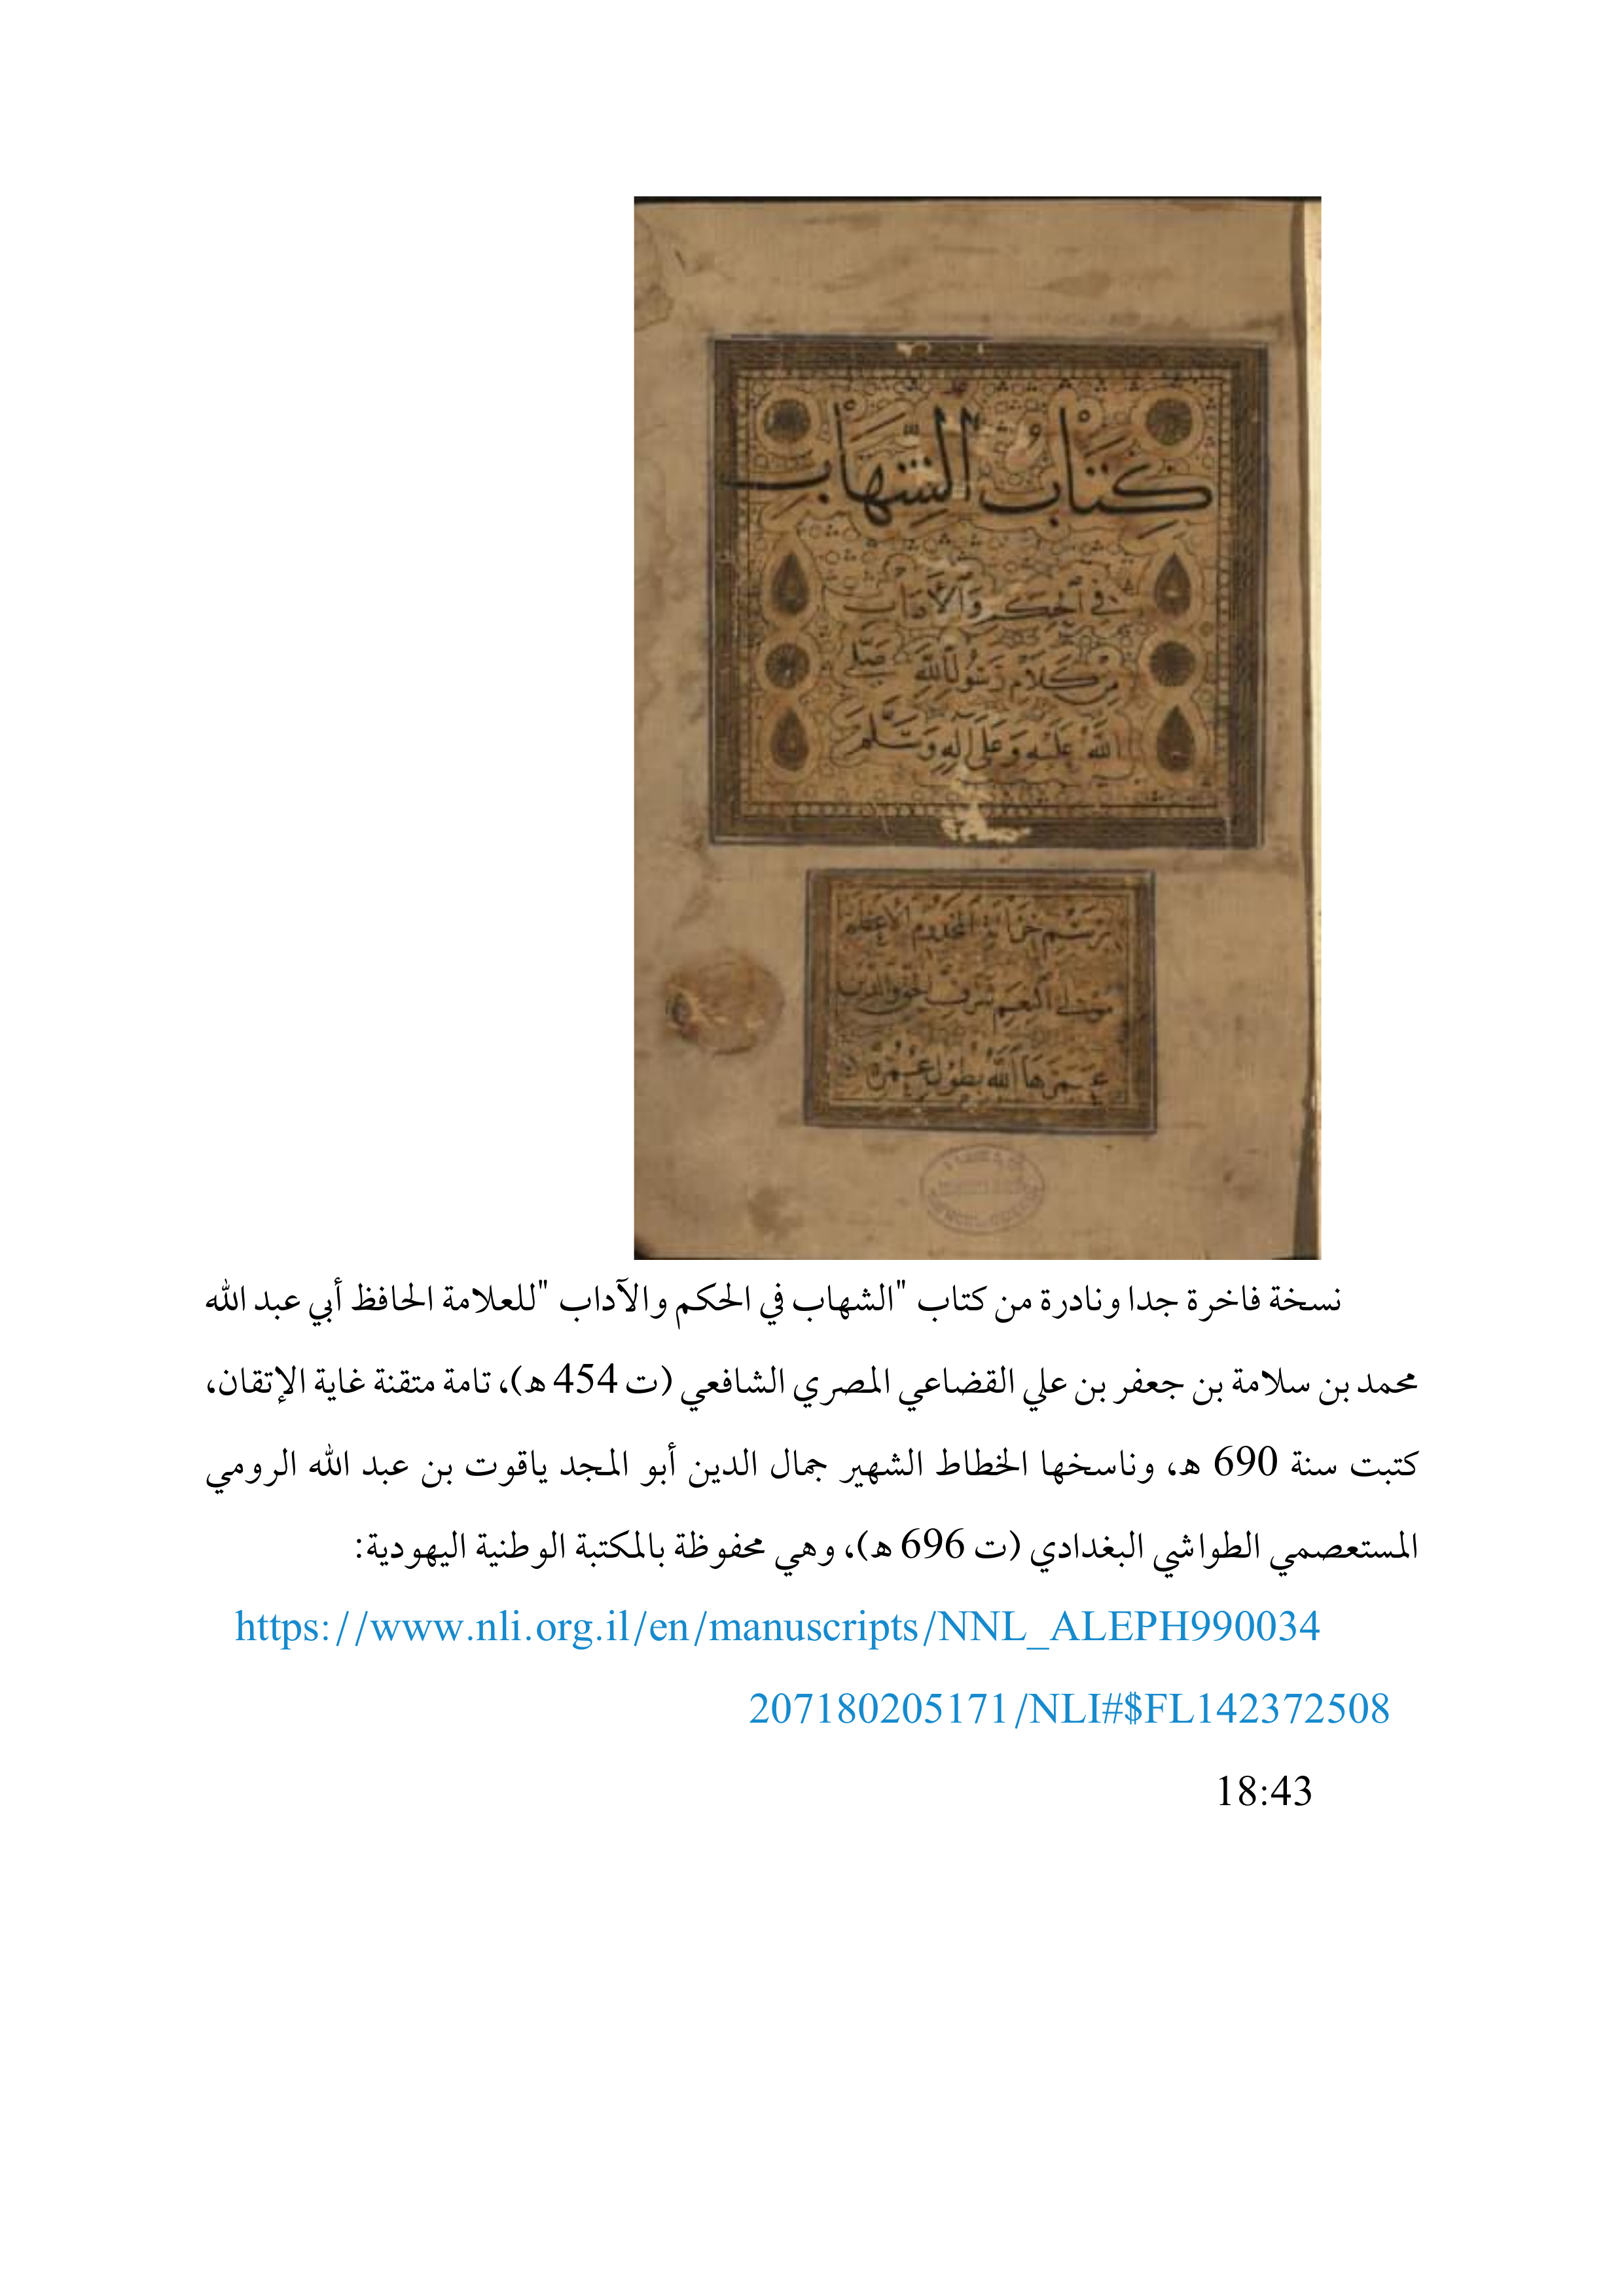 كتاب الشهاب
في الحكم والآداب
من كلام رسول الله صلى
الله عليه وعلى آله وسلم
برسم خزانة المخدوم الأعظم
مولى النعم شرف الحق والدين
عمرها الله بطول عمره
نسخة فاخرة جدا ونادرة من كتاب "الشهاب في الحكم والآداب "للعلامة الحافظ أبي عبد الله
محمد بن سلامة بن جعفر بن علي القضاعي المصري الشافعي (ت 454 ه)، تامة متقنة غاية الإتقان،
كتبت سنة 690 ه، وناسخها الخطاط الشهير جمال الدين أبو المجد ياقوت بن عبد الله الرومي
المستعصمي الطواشي البغدادي (ت 696 ه)، وهي محفوظة بالمكتبة الوطنية اليهودية:
https://www.nli.org.il/en/manuscripts/NNL_ALEPH990034
207180205171/NLI#$FL142372508
18:43